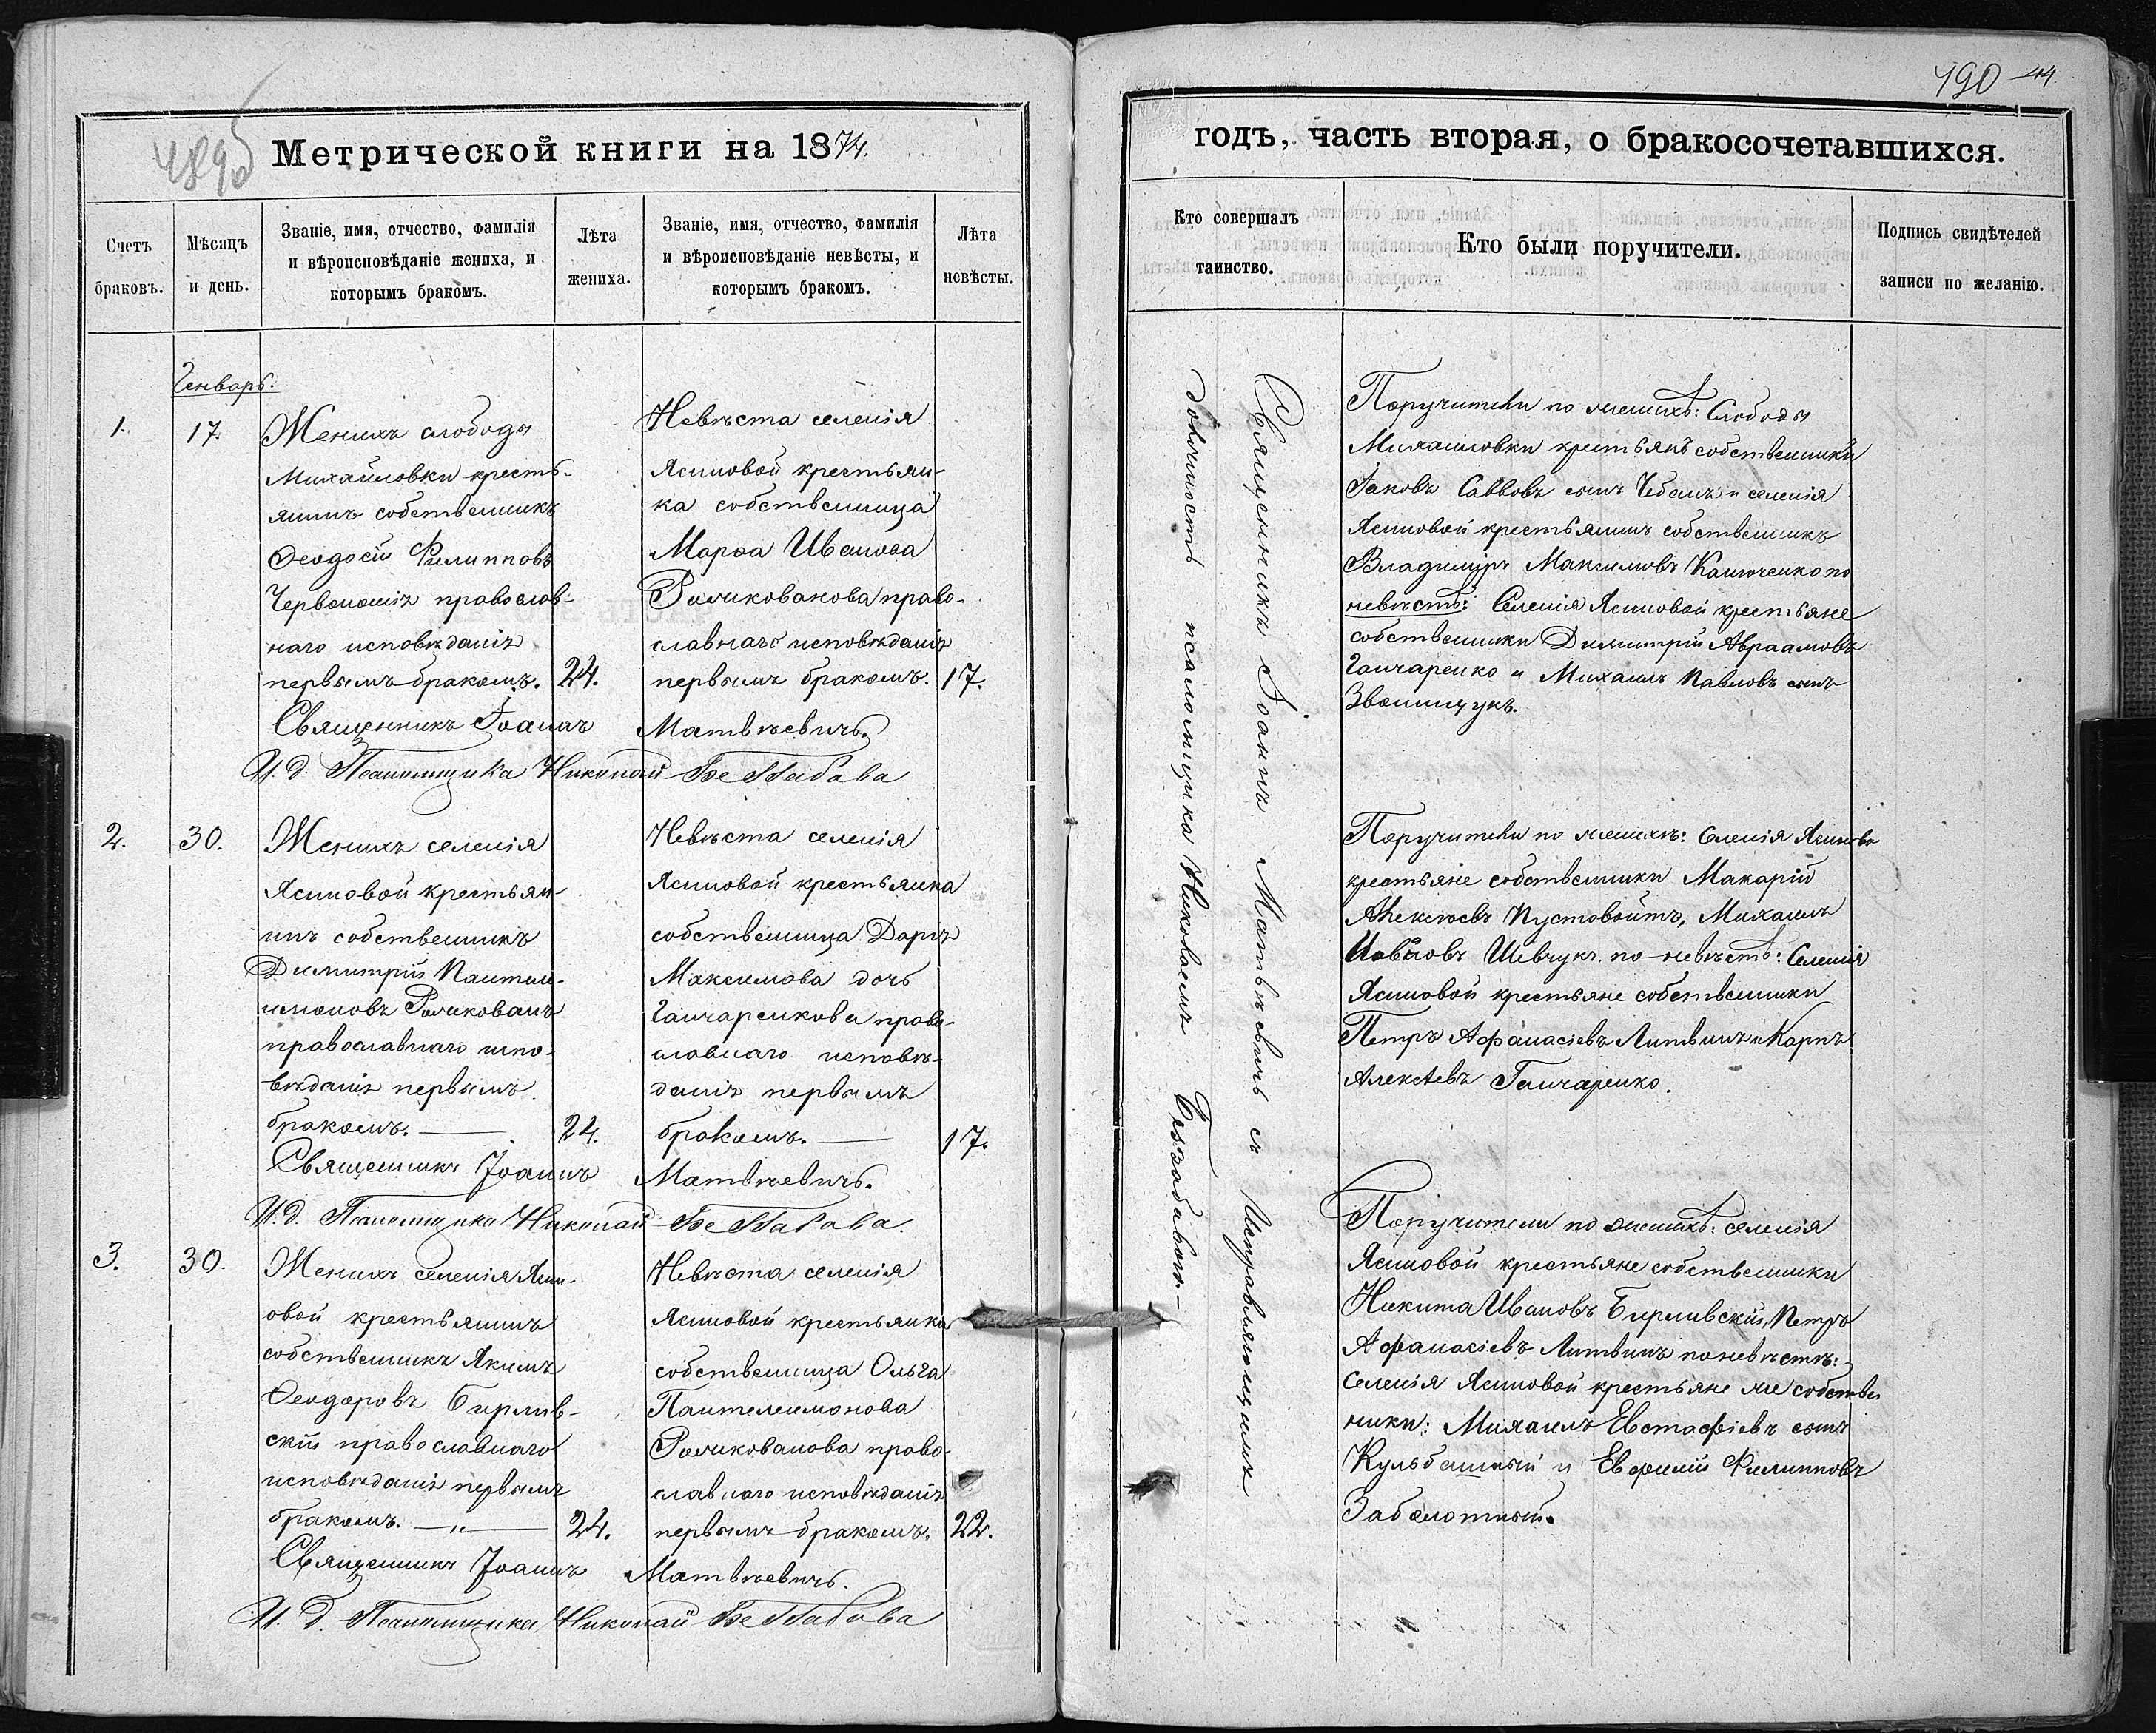 489об
Метрической книги на 1874.
Счетъ браковъ.
Мѣсяцъ и день.
Званіе, имя, отчество, фамилія
и вѣроисповѣданіе жениха, и
которымъ бракомъ.
Лѣта жениха.
Званіе, имя, отчество, фамилія
и вѣроисповѣданіе невѣсты, и
которымъ бракомъ.
Лѣта невѣсты.
Генварь.
1.
17.
Женихъ слободы
Михайловки кресть-
янинъ собственникъ
Ѳеодосій Филипповъ
православ-
наго исповѣданія
первымъ бракомъ.
24.
Невѣста селенія
Ясиновой крестьян-
ка собственница
Марѳа Иванова
право-
славнаго исповѣданія
первымъ бракомъ.
17.
Священникъ Іоаннъ Матвѣевичъ.
И. д. Псаломщика Николай Беззабава
2.
30.
Женихъ селенія
Ясиновой крестьян-
инъ собственникъ
Димитрій Пантеле-
имоновъ
православнаго испо-
вѣданія первымъ
бракомъ. —
24.
Невѣста селенія
Ясиновой крестьянка
собственница Дарія
Максимова дочь
Ганчаренкова право-
славнаго исповѣ-
данія первымъ
бракомъ. —
17.
Священникъ Іоаннъ Матвѣевичъ.
И. д. Псаломщика Николай Беззабава.
3.
30.
Женихъ селенія Ясин-
овой крестьянинъ
собственникъ Якимъ
Ѳеодоровъ Бирлив-
скій православнаго
исповѣданія первымъ
бракомъ. — „ —
24.
Невѣста селенія
Ясиновой крестьянка
собственница Ольга
Пантелеимонова
право-
славнаго исповѣданія
первымъ бракомъ.
22.
Священникъ Іоаннъ Матвѣевичъ.
И. д. Псаломщика Николай Беззабава
490 44.
годъ, часть вторая, о бракосочетавшихся.
Кто совершалъ таинство.
Кто были поручители.
Подпись свидѣтелей
записи по желанію.
Священникъ Іоаннъ Матвѣевичъ съ Исправляющимъ
должность псаломщика Николаемъ Беззабавою.—
Поручители по женихѣ: Слободы
Михайловки крестьянъ собственники
Іаковъ Саввовъ сынъ Чебанъ и селенія
Ясиновой крестьянинъ собственникъ
Владиміръ Максимовъ по
невѣстѣ: Селенія Ясиновой крестьяне
собственники Димитрій Авраамовъ
Ганчаренко и Михаилъ Павловъ сынъ
Звонищукъ.
Поручители по женихѣ: Селенія Ясиново
крестьяне собственники Макарій
Алексѣевъ Пустовойтъ, Михаилъ
Ивановъ Шевчукъ. по невѣстѣ: Селенія
Ясиновой крестьяне собственники
Петръ Афанасіевъ Литвинъ и Карпъ
Алексѣевъ Ганчаренко.
Поручители по женихѣ: селенія
Ясиновой крестьяне собственники
Никита Ивановъ Бирливскій, Петръ
Афанасіевъ Литвинъ по невѣстѣ:
Селенія Ясиновой крестьяне же собствен
ники: Михаилъ Евстафіевъ сынъ
и Евфимій Филипповъ
Заболотный.